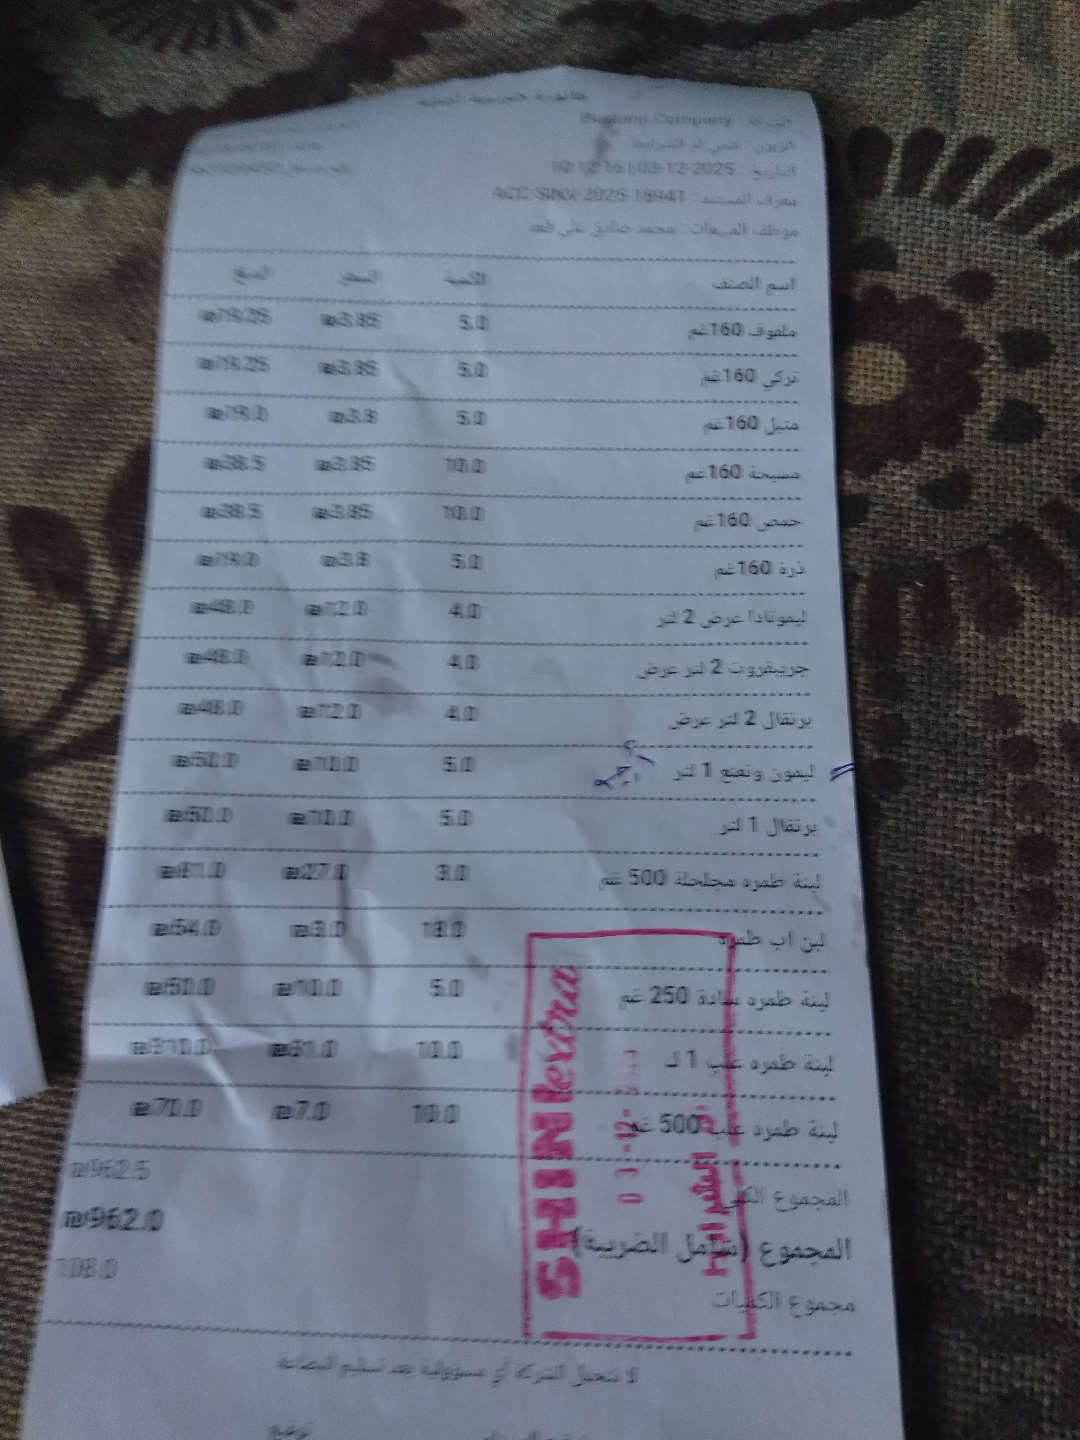 التاريخ : 2025-12-03 | 10:12:16
معرف المستند : ACC-SINV-2025-18941
موظف المبيعات : محمد صادق علي
اسم الصنف الكمية السعر المبلغ
ملفوف 160غم 5.0 ₪3.85 ₪19.25
تركي 160غم 5.0 ₪3.85 ₪19.25
متبل 160غم 5.0 ₪3.8 ₪19.0
مسبحة 160غم 10.0 ₪3.85 ₪38.5
حمص 160غم 10.0 ₪3.85 ₪38.5
ذرة 160غم 5.0 ₪3.8 ₪19.0
ليمونادا عرض 2 لتر 4.0 ₪12.0 ₪48.0
جريبفروت 2 لتر عرض 4.0 ₪12.0 ₪48.0
برتقال 2 لتر عرض 4.0 ₪12.0 ₪48.0
ليمون ونعنع 1 لتر 5.0 ₪10.0 ₪50.0
برتقال 1 لتر 5.0 ₪10.0 ₪50.0
لبنة طمره مجلحلة 500 غم 3.0 ₪27.0 ₪81.0
لبن اب طمره 18.0 ₪3.0 ₪54.0
لبنة طمره سادة 250 غم 5.0 ₪10.0 ₪50.0
لبنة طمره علب 1 لـ 10.0 ₪31.0 ₪310.0
لبنة طمره علب 500 غم 10.0 ₪7.0 ₪70.0
المجموع الكلي ₪962.5
المجموع (شامل الضريبة) ₪962.0
مجموع الكميات 108.0
SHINI extra
03-12-
لا تتحمل الشركة أي مسؤولية بعد تسليم البضاعه
توقيع